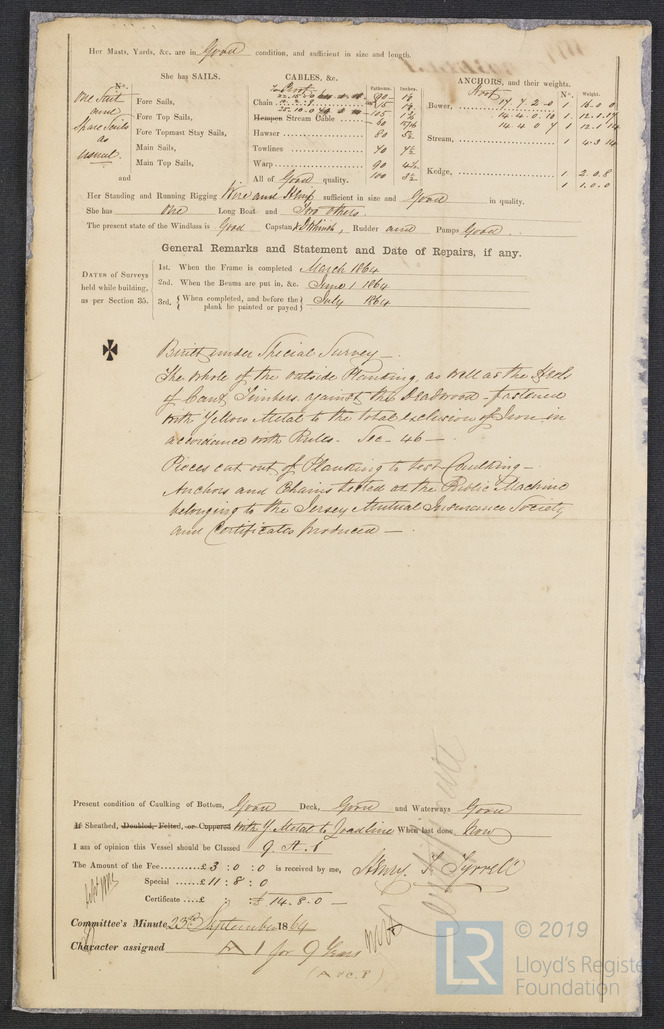 Her Masts, Yards, &c. are in Good condition, and sufficient in size and length.
She has SAILS.
CABLES, &c.
ANCHORS, and their weights.
No.
Fathoms.
Inches.
No.
Weight.
One Suit
and
Spare Sails
as
usual.
Fore Sails,
Fore Top Sails,
Fore Topmast Stay Sails,
Main Sails,
Main Top Sails,
and
Proof
Chain
Hempen Stream Cable
Hawser 80
Towlines
Warp 90
100
All of Good quality.
Proof
Bower, 17 7 2 0 1 16 0 0
14 4 0 10 1
14 4 0 7 1
Stream, 1 4 3 14
Kedge, 1 2 0 8
1 1 0 0
Her Standing and Running Rigging Wire and Hemp sufficient in size and Good in quality.
She has One Long Boat and Two others.
The present state of the Windlass is Good Capstan & Winch, Rudder and Pumps Good.
General Remarks and Statement and Date of Repairs, if any.
DATES of Surveys
held while building,
as per Section 35.
1st. When the Frame is completed March 1864
2nd. When the Beams are put in, &c. June 1 1864
3rd. { When completed, and before the plank be painted or payed } July 1864
Built under Special Survey —
The whole of the outside Planking, as well as the Heels
of Cant Timbers against the Deadwood - fastened
with Yellow Metal to the total exclusion of Iron in
accordance with Rules. Sec - 46 —
Pieces cut out of Planking to test Caulking —
Anchors and Chains tested at the Public Machine
belonging to the Jersey Mutual Insurance Society
and Certificates produced —
Present condition of Caulking of Bottom, Good Deck, Good and Waterways Good
If Sheathed, Doubled, Felted, or Coppered with Y Metal to Loadline When last done, Now
I am of opinion this Vessel should be Classed 9. A. 1
The Amount of the Fee......£3 : 0 : 0 is received by me,
Special ......£11 : 8 : 0
Certificate ....£ £ 14. 8. 0 —
Henry F Tyrrell
Committee's Minute 23rd September 1864
Character assigned A 1 for 9 Years
© 2019
LR
Lloyd's Register
Foundation